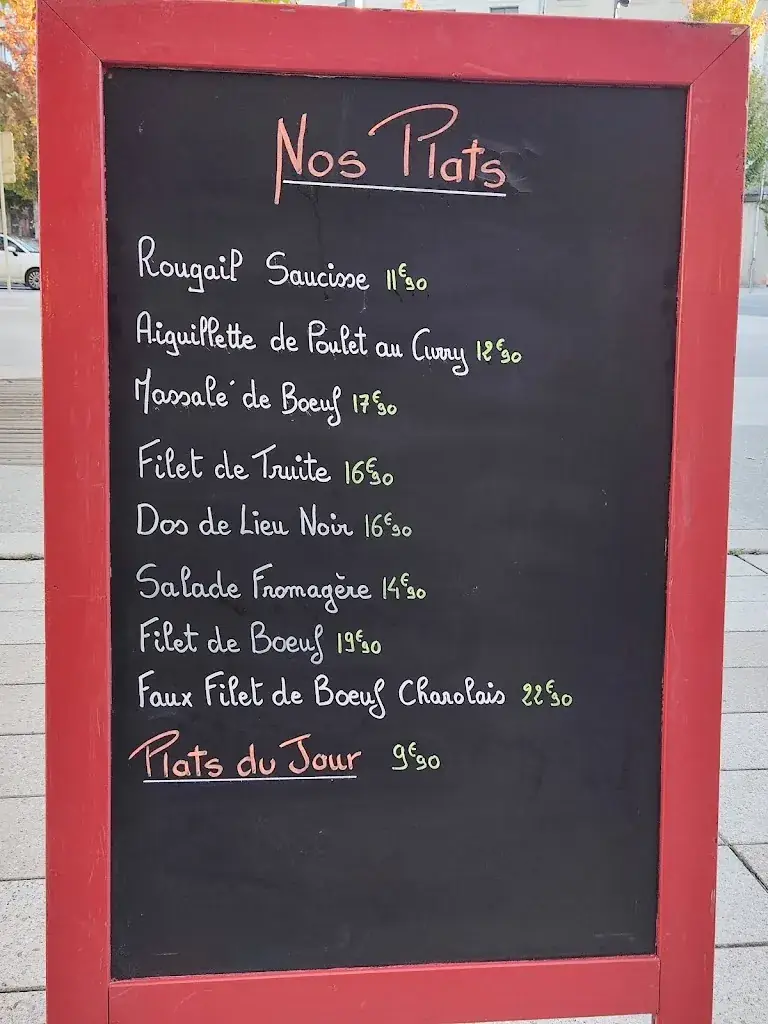 Nos Plats
Rougail Saucisse 11€90
Aiguillette de Poulet au Curry 12€90
Massalé de Boeuf 17€90
Filet de Truite 16€90
Dos de Lieu Noir 16€90
Salade Fromagère 14€90
Filet de Boeuf 19€90
Faux Filet de Boeuf Charolais 22€90
Plats du Jour 9€90